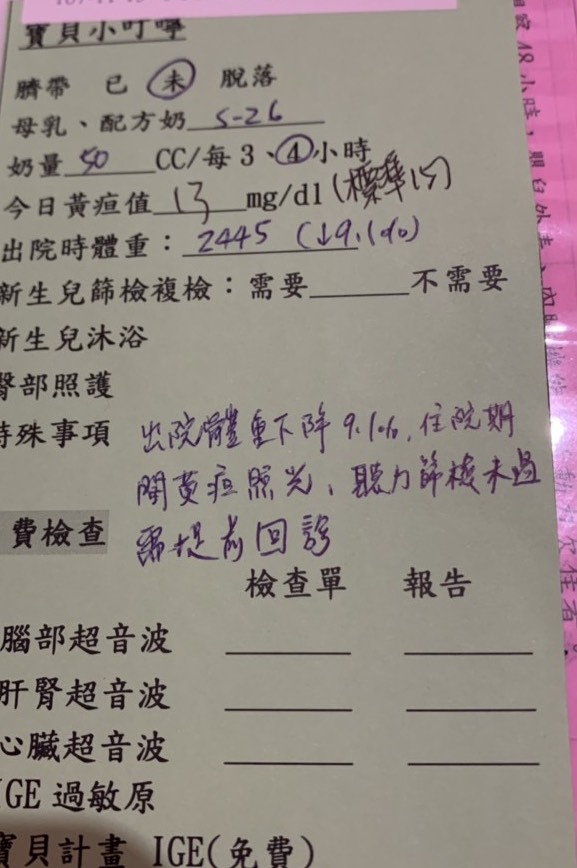 寶貝小叮嚀
臍帶 已 未 脫落
母乳、配方奶 S-26
奶量 50 CC/每 3、4 小時
今日黃疸值 13 mg/dl (標準15)
出院時體重： 2445 (↓9.1%)
新生兒篩檢複檢：需要______不需要
新生兒沐浴
臀部照護
特殊事項 出院體重下降9.1%，住院期
間黃疸照光，聽力篩檢未過
需提前回診
費檢查
檢查單 報告
腦部超音波
肝腎超音波
心臟超音波
IGE 過敏原
寶貝計畫 IGE(免費)